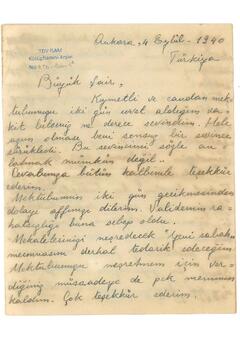 TDV İSAM
Kütüphanesi Arşivi
No
Ankara, 4 Eylül - 1940
Türkiya
Büyük Şair,
Kıymetli ve candan mek
tubunuzu iki gün evvel aldığım va
kit bilseniz ne derece sevindim. Hele
uzun olması beni sonsuz bir sevince
sürükledi. Bu sevincimi söyle an
latmak mümkün değil..
Cevabınıza bütün kalbimle teşekkür
ederim.
Mektubumun iki gün gecikmesinden
dolayı affımızı dilerim. Validemin ra-
hatsızlığı buna sebep oldu.
Mekalelerinizi neşredecek "Yeni sabah"
mecmuasını derhal tedarik edeceğim.
Mektubunuzu neşretmem için ver-
diğiniz müsaadeye de pek memnun
kaldım. Çok teşekkür ederim.